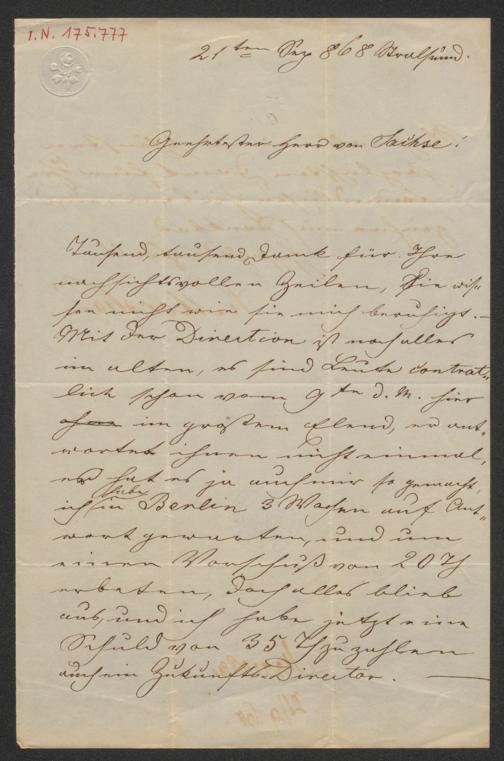 I.N. 175.777
21ten Sep 868 Stralsund.
Geehrtester Herr von Sachse!
Tausend, tausend Dank für Ihre
nachsichtsvollen Zeilen, Sie wis-
sen nicht wie sie mich beruhigt. –
Mit der Direction ist noch alles
im alten, es sind Leute contrat-
lich schon vom 9ten d. M. hier
im großem Elend, er ant-
wortet ihnen nicht einmal,
er hat es ja auch mir so gemacht,
ich habe in Berlin 3 Wochen auf Ant-
wort gewartet, und um
einen Vorschuß von 20 Th
erbeten, doch alles blieb
aus, und ich habe jetzt eine
Schuld von 35 Th zu zahlen
auch ein Zukunfts-Director. —